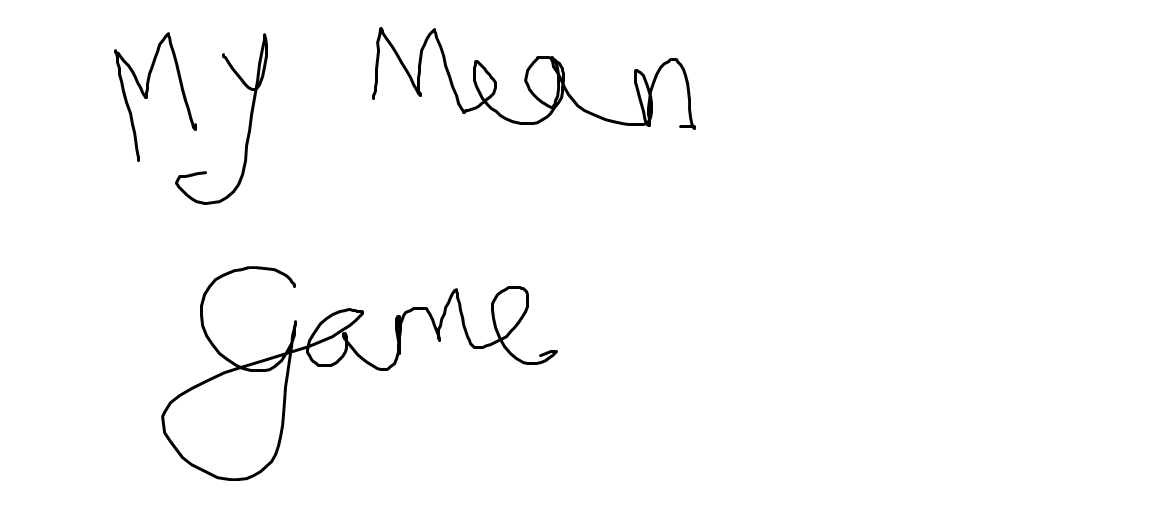 My Mean
Game